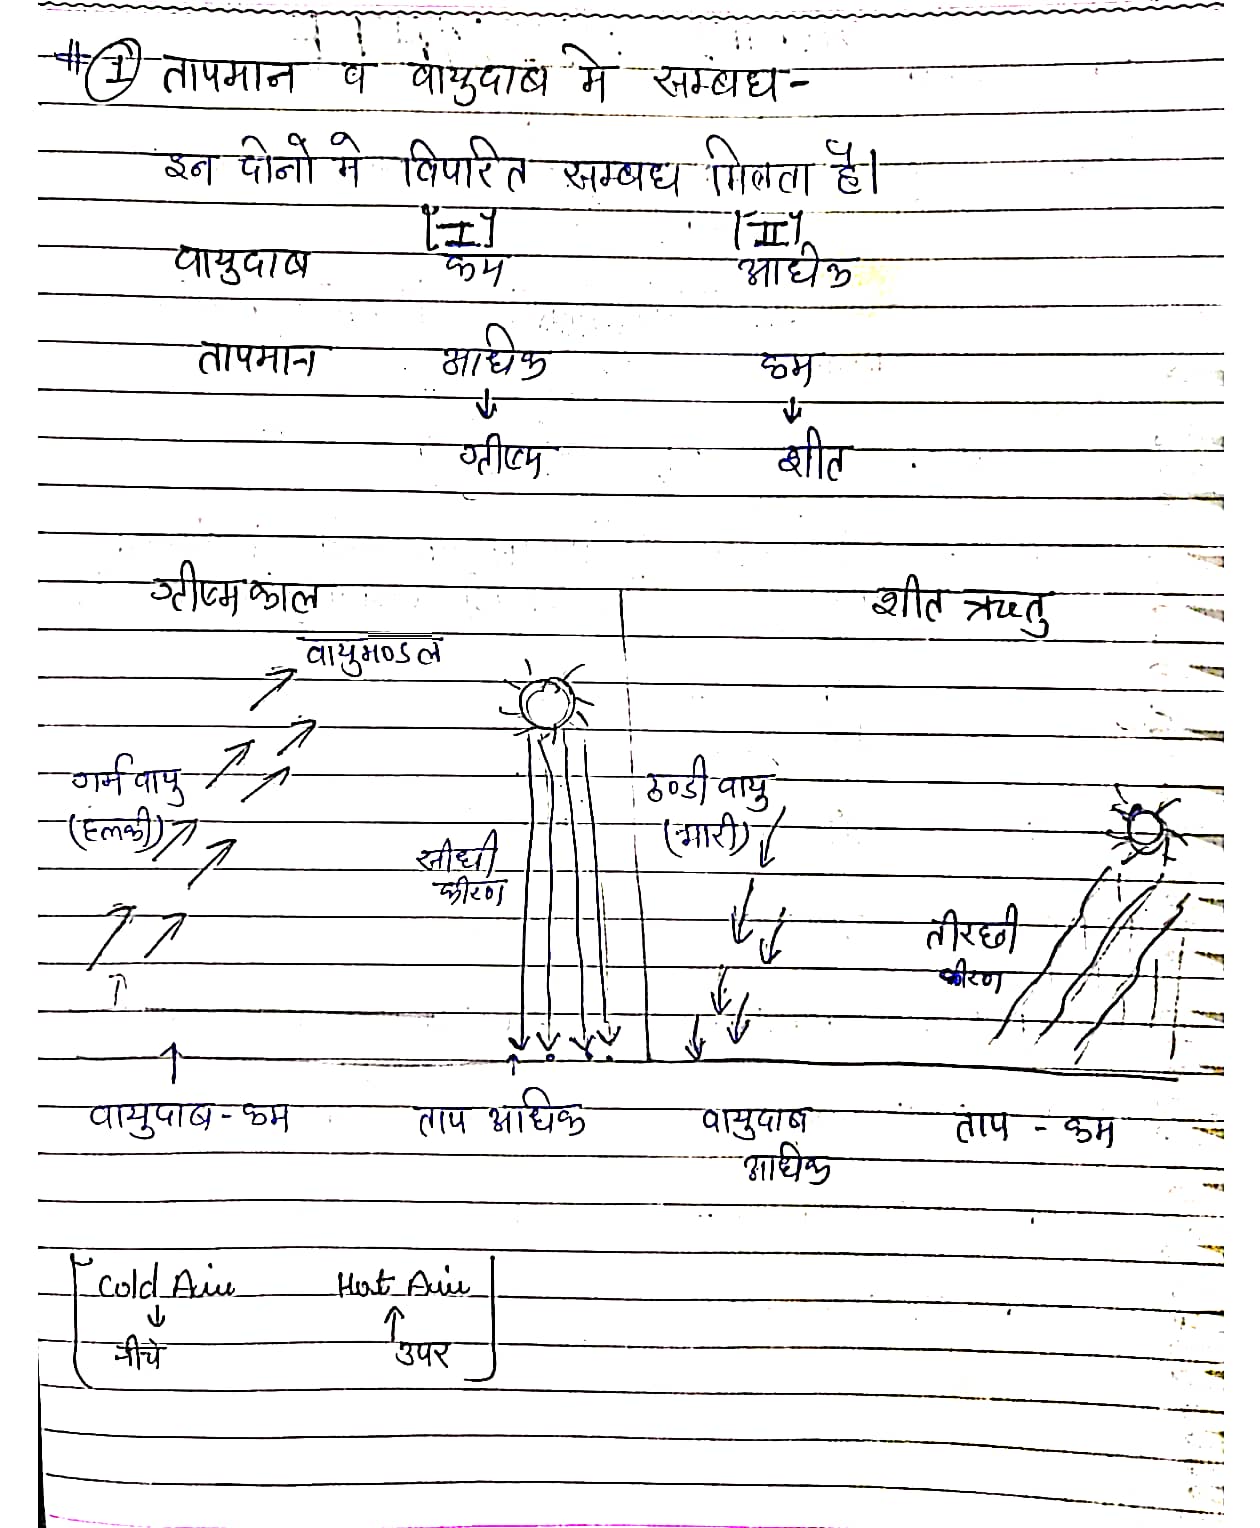 # ① तापमान व वायुदाब में सम्बंध-
इन दोनों में विपरित सम्बंध मिलता है।
[I] [II]
वायुदाब कम अधिक
तापमान अधिक कम
↓ ↓
ग्रीष्म शीत
ग्रीष्म काल शीत ऋतु
वायुमण्डल
गर्म वायु ठण्डी वायु
(हलकी) (भारी)
सीधी
कीरण
तीरछी
कीरण
वायुदाब-कम ताप अधिक वायुदाब ताप - कम
अधिक
Cold Air Hot Air
↓ ↑
नीचे उपर